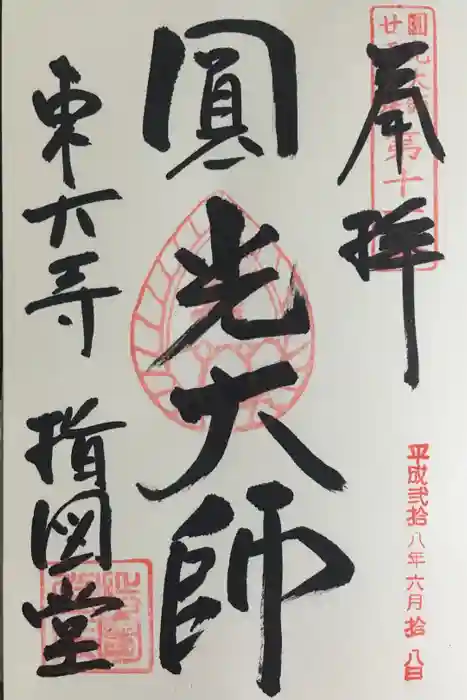 奉拝
圓光大師
東大寺 指図堂
平成弐拾八年六月拾八日